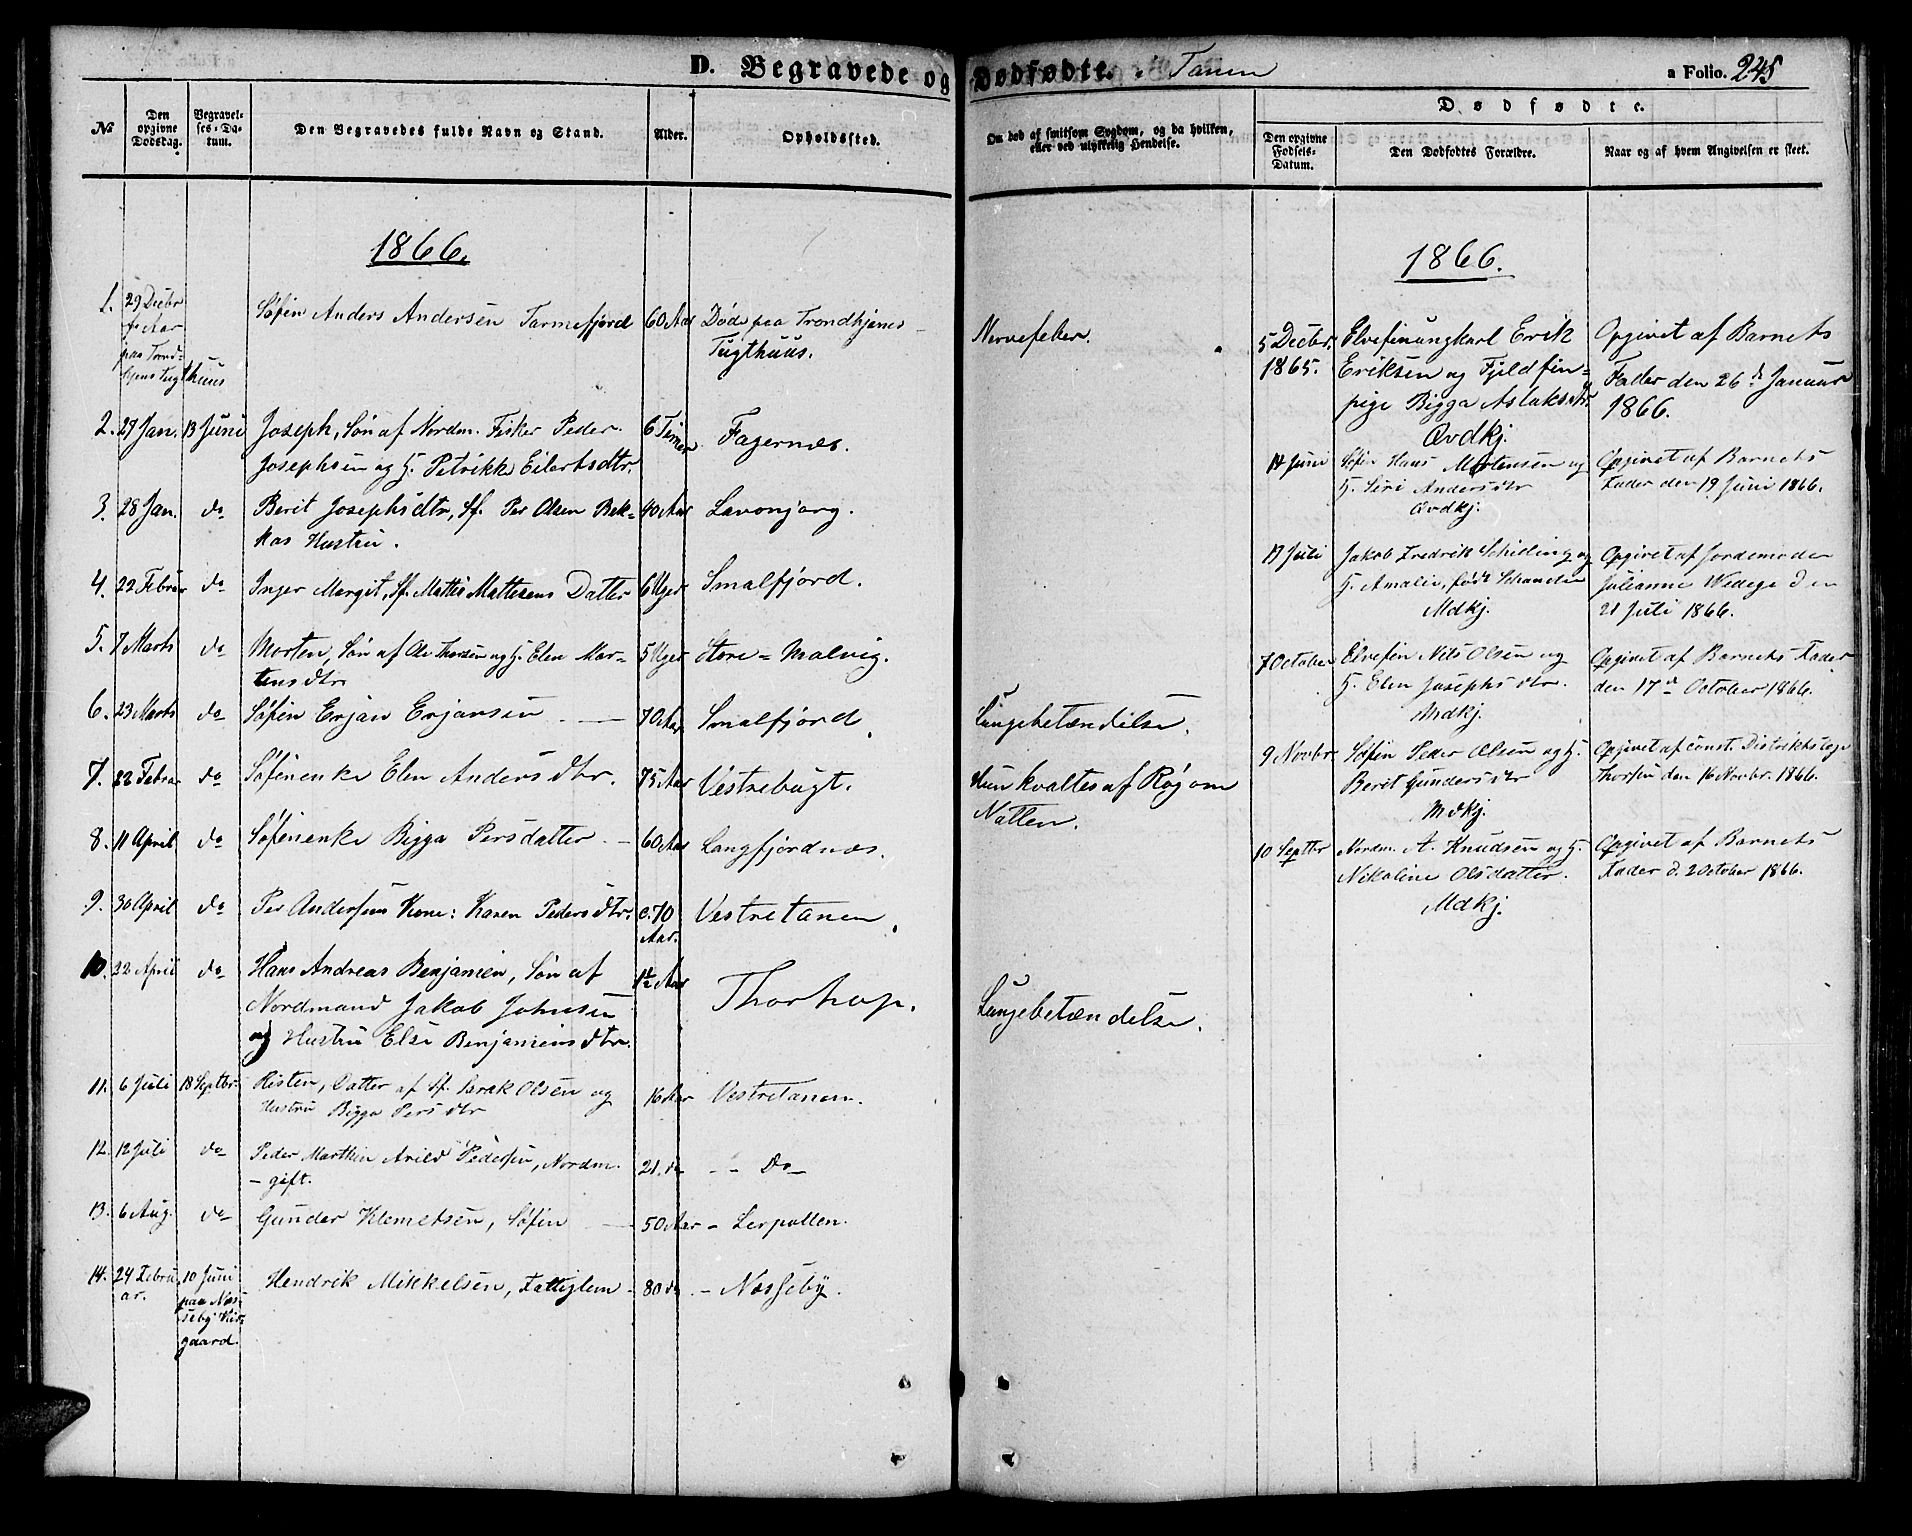 D. Begravede og Dødfødte. i Tanen
a Folio. 245
No
Den opgivne Dødsdag.
Begravelses-Datum.
Den Begravedes fulde Navn og Stand.
Alder.
Opholdssted.
Om død af smitsom Sygdom, og da hvilken,
eller ved ulykkelig Hendelse.
Dødfødte.
Den opgivne Fødsels-Datum.
Den Dødfødtes Forældre.
Naar og af hvem Angivelsen er skeet.
1866.
1. 29 Decbr f. Aar paa Trondhjems Tugthuus Søfin Anders Andersen Tarmefjord 60 Aar Døde paa Trondhjems
Tugthuus. Nervefeber.
2. 27 Jan. 13 Juni Joseph, Søn af Nordm. Fisker Peder 6 Timer Fagernæs.
Josephsen og H. Petrikke Eilertsdtr.
3. 28 Jan. do Berit Josephsdtr, Sf. Per Olsen Bek= 40 Aar Lavonjarg.
kas Hustru.
4. 22 Februar do Inger Margit, Sf. Mattis Mattesens Datter 6 Uger Smalfjord.
5. 7 Marts do Morten, Søn af Ole Thorsen og H. Elen Mor= 5 Uger Store=Malvig.
tensdtr
6. 23 Marts do Søfin Erjan Erjansen 70 Aar Smalfjord. Lungebetændelse.
7. 22 Februar do Søfinenke Elen Andersdtr. 75 Aar Vestrebugt. Hun kvaltes af Røg om
Natten.
8. 11 April do Søfinenke Bigga Persdatter 60 Aar Langfjordnæs.
9. 30 April do Per Andersens Kone: Karen Pedersdtr. c. 70 Aar. Vestretanen.
10. 22 April do Hans Andreas Benjamin, Søn af 1½ Aar Thorhop. Lungebetændelse.
Nordmand Jakob Johnsen
og Hustru Else Benjaminsdtr.
11. 6 Juli 18 Septbr. Risten, Datter af Sf. Israk Olsen og 16 Aar Vestretanen.
Hustru Bigga Persdtr
12. 12 Juli do Peder Marthin Arild Pedersen, Nordm. 21. do -- Do-
- gift.
13. 6 Aug. do Gunder Klemetsen, Søfin 50 Aar - Lerpollen.
14. 24 Februar. 10 Juni paa Næsseby Kirgaard. Hendrik Mikkelsen, Fattiglem - 80 do - Næsseby.
1866.
5 Decbr. Elvefinungkarl Erik Opgivet af Barnets
1865. Eriksen og Fjeldfin= Fader den 26d Januar
pige Bigga Aslaksdtr. 1866.
Qvdkj.
14 Juni Søfin Hans Mortensen og Opgivet af Barnets
H. Siri Andersdtr Fader den 19 Juni 1866.
Qvdkj.
17 Juli Jakob Fredrik Schiding og Opgivet af Jordemoder
H. Amalie, født Schancke Julianne Wedege den
Mdkj. 21 Juli 1866.
7 October Elvefin Nils Olsen og Opgivet af Barnets Fader
H. Elen Josephsdtr. den 17d October 1866.
Mdkj.
9 Novbr. Søfin Peder Olsen og H. Opgivet af const. Distriktslæge
Beret Gundersdtr Thorsen den 16 Novbr. 1866.
Mdkj.
10 Septbr Nordm. A. Knudsen og H. Opgivet af Barnets
Nikoline Olsdatter. Fader d. 2 October 1866.
Mdkj.